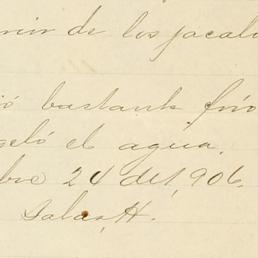 de los jacal
ó bastante frio
eló el agua.
bre 24 del 906.
Salas H.